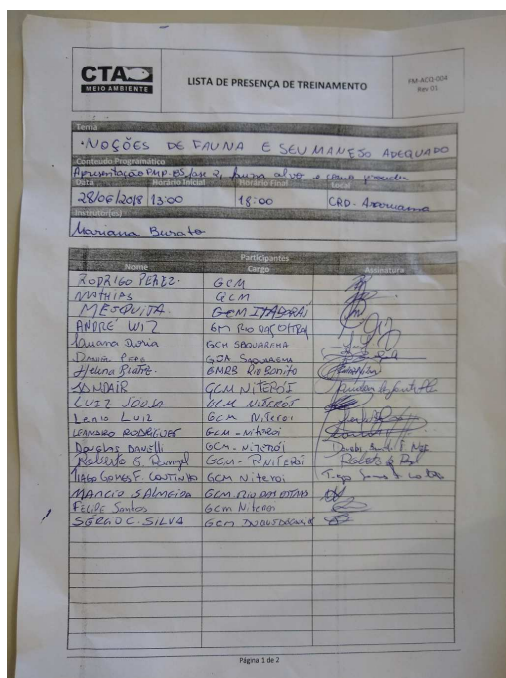 CTA
MEIO AMBIENTE
LISTA DE PRESENÇA DE TREINAMENTO
FM-ACQ-004
Rev 01
Tema
·NOÇÕES DE FAUNA E SEU MANEJO ADEQUADO
Conteúdo Programático
Apresentação PMP-ES fase 2, fauna alvo e como proceder
Data Horário Inicial Horário Final Local
28/06/2018 13:00 18:00 CRD - Araruama
Instrutor(es)
Mariana Burato
Participantes
Nome Cargo Assinatura
RODRIGO PEREZ. GCM
MATHIAS GCM
MESQUITA GCM ITABORAÍ
ANDRÉ WIZ GM RIO DAS OSTRAS
Luana Doria GCM SAQUAREMA
GCM SAQUAREMA
Helena GMRB Rio Bonito
JANDAIR GCM NITEROI
LUIZ GCM NITERÓI
Lenio Luiz GCM Niteroi
LEANDRO RODRIGUES GCM - Niterói
DOUGLAS DANELLI GCM - NITERÓI
Roberto G. GCM - NITERÓI
TIAGO GOMES F. COUTINHO GCM Niteroi
MARCIO S ALMEIDA GCM RIO DAS OSTRAS
FELIPE Santos GCM Niteroi
SÉRGIO C. SILVA GCM DUQUE DE CAXIAS
Página 1 de 2